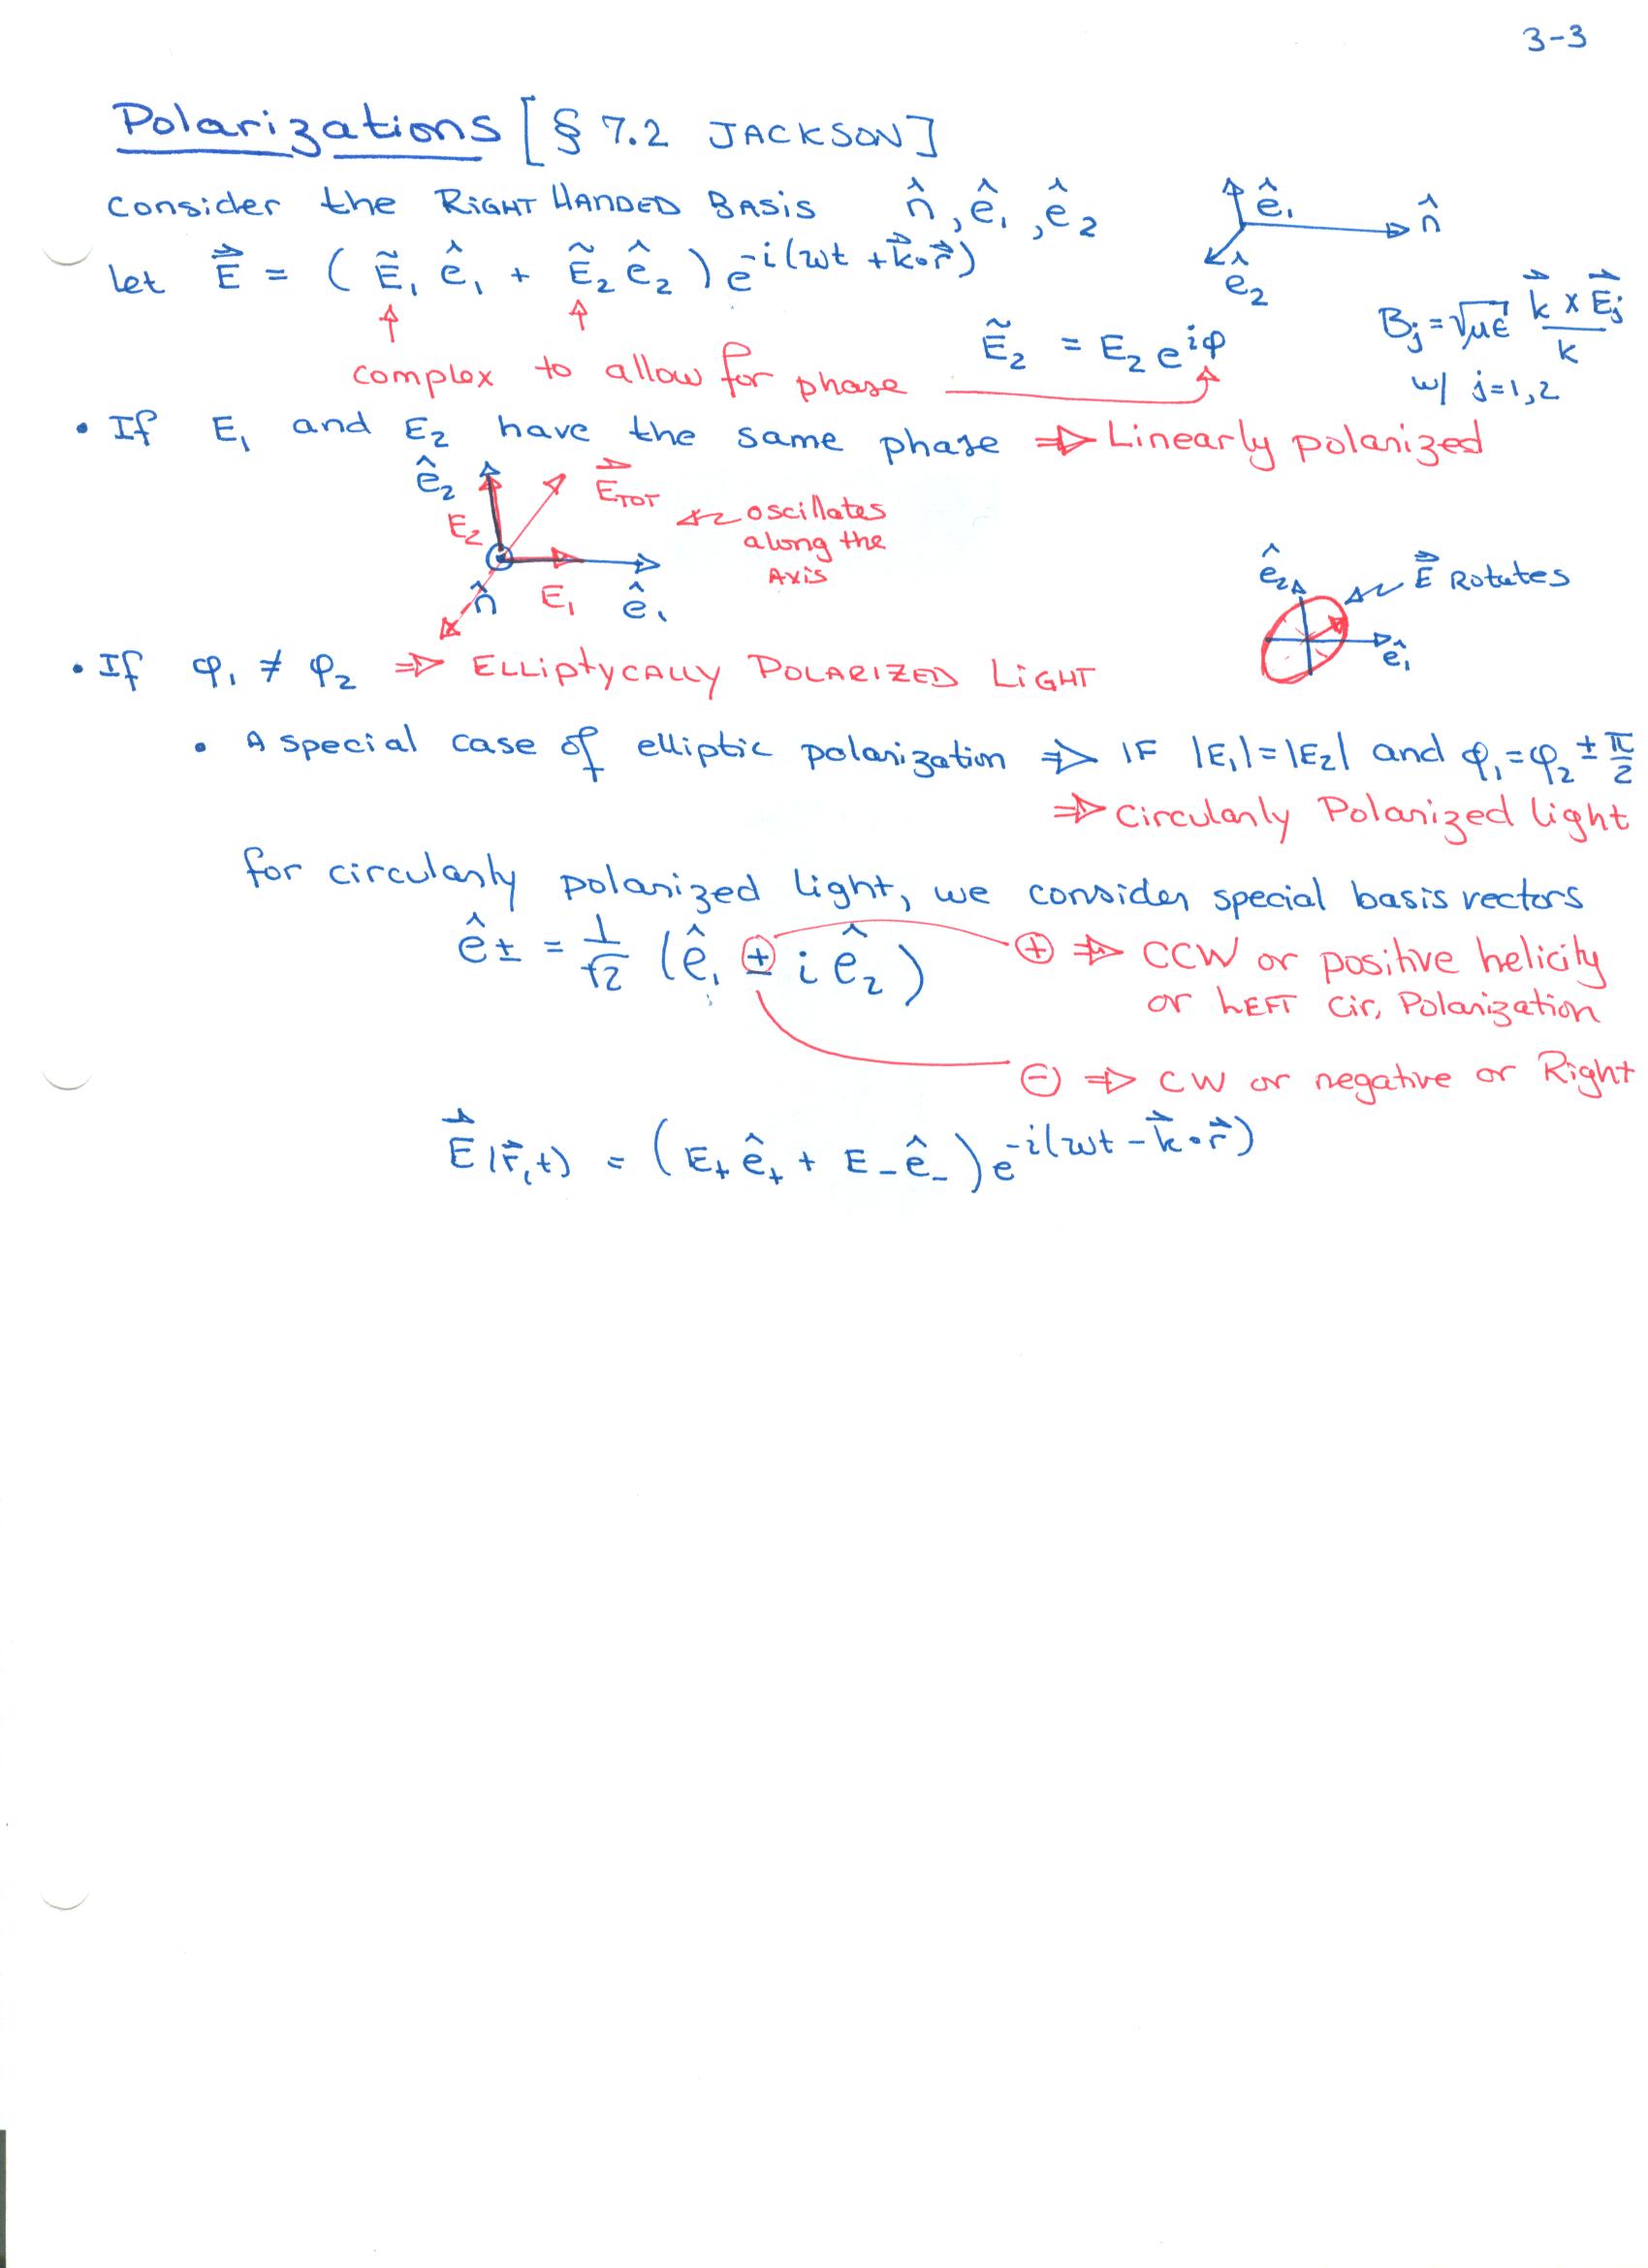 3-3
Polarizations [§ 7.2 JACKSON]
consider the RIGHT HANDED BASIS n̂, ê₁, ê₂
ê₁
n̂
ê₂
let E⃗ = ( Ẽ₁ ê₁ + Ẽ₂ ê₂ ) e^{-i(ωt + k⃗·r⃗)}
Ẽ₂ = E₂ e^{iφ}
B_j = √με (k⃗ × E⃗_j)/k
w/ j=1,2
complex to allow for phase
• If E₁ and E₂ have the same phase ⇒ Linearly polarized
ê₂
E₂
E⃗_TOT
oscillates
along the
AXIS
n̂ E₁ ê₁
ê₂
E⃗ Rotates
ê₁
• If φ₁ ≠ φ₂ ⇒ ELLIPTYCALLY POLARIZED LIGHT
• A special case of elliptic polarization ⇒ IF |E₁|=|E₂| and φ₁=φ₂ ± π/2
⇒ Circularly Polarized light
for circularly polarized light, we consider special basis vectors
ê± = 1/√2 (ê₁ ± i ê₂)
⊕ ⇒ CCW or positive helicity
or LEFT Cir. Polarization
⊖ ⇒ CW or negative or Right
E⃗(r⃗,t) = (E₊ ê₊ + E₋ ê₋) e^{-i(ωt - k⃗·r⃗)}